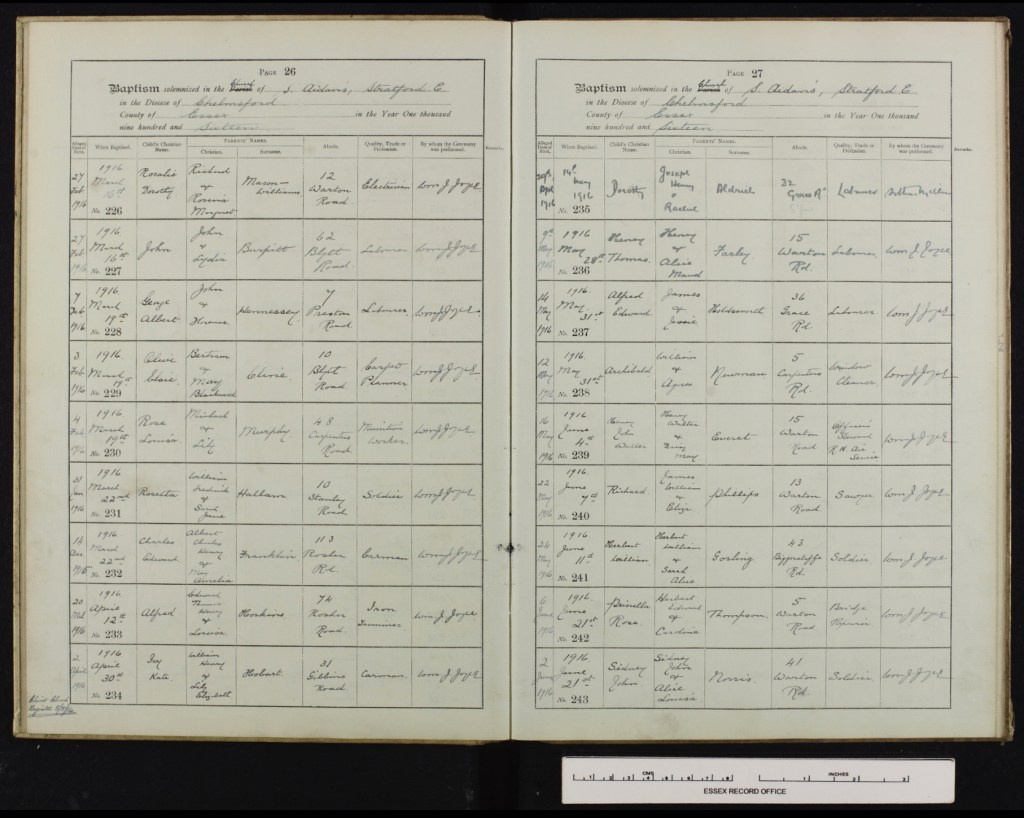 PAGE 26
Baptism solemnized in the Church Parish of S. Aidans, Stratford E.
in the Diocese of Chelmsford
County of Essex in the Year One thousand
nine hundred and Sixteen
Alleged Date of Birth. When Baptized. Child's Christian Name. PARENTS' NAMES. Christian. Surname. Abode. Quality, Trade or Profession. By whom the Ceremony was performed. Remarks.
27 Feb 1916 1916 March No. 226 Rosalie Dorothy Richard & Rosina Margaret Mason-Williams 12 Warton Road Electrician Wm J Joyce
27 Feb 1916 1916 March 16th No. 227 John John & Lydia Burpitt 62 Blyth Road Labourer Wm J Joyce
7 Feb 1916 1916 March 19th No. 228 George Albert John & Florence Hennessey 7 Preston Road Labourer Wm J Joyce
3 Feb 1916 1916 March 19th No. 229 Clive Bertram & May 10 Blyth Road Carpet Planner Wm J Joyce
4 Feb 1916 1916 March 19th No. 230 Rose Louisa Michael & Lily Murphy 48 Carpenters Road Munition Worker Wm J Joyce
31 Jan 1916 1916 March 22nd No. 231 Rosetta William Frederick & Sarah Jane Hallam 10 Stanley Road Soldier Wm J Joyce
14 Dec 1915 1916 March 22nd No. 232 Charles Edward Albert Charles Henry & May Amelia Franklin 113 Rosher Rd. Carman Wm J Joyce
20 1916 1916 April 12th No. 233 Alfred Edward Thomas Henry & Louisa Hoskins 74 Rosher Road Iron Wm J Joyce
2 April 1916 1916 April 30th No. 234 Ivy Kate William Henry & Lily Elizabeth Hobart 31 Gibbins Road Carman Wm J Joyce
PAGE 27
Baptism solemnized in the Church Parish of S. Aidans, Stratford E.
in the Diocese of Chelmsford
County of Essex in the Year One thousand
nine hundred and Sixteen
Alleged Date of Birth. When Baptized. Child's Christian Name. PARENTS' NAMES. Christian. Surname. Abode. Quality, Trade or Profession. By whom the Ceremony was performed. Remarks.
April 1916 14th May 1916 No. 235 Dorothy Joseph Henry & Rachel Aldrich 32 Grace Rd Labourer
9th May 1916 1916 May 28th No. 236 Henry Thomas Henry & Alice Maud Farley 15 Warton Rd. Labourer Wm J Joyce
14 May 1916 1916 May 31st No. 237 Alfred Edward James & Jessie Holdsworth 36 Grace Rd Labourer Wm J Joyce
12 May 1916 1916 May 31st No. 238 Archibald William & Agnes Newman 5 Carpenters Rd. Window Cleaner Wm J Joyce
16 May 1916 1916 June 4th No. 239 Henry John Walter Henry Willie & Daisy May Everet 15 Warton Road Officers Steward R.N. Air Service Wm J Joyce
22 May 1916 1916 June 7th No. 240 Richard James William & Eliza Phillips 13 Warton Road Sawyer Wm J Joyce
24 May 1916 1916 June 11th No. 241 Herbert William Herbert William & Sarah Alice Gosling 43 Rd. Soldier Wm J Joyce
6 June 1916 1916 June 21st No. 242 Rose Herbert Edward & Caroline Thompson 5 Warton Road Bridge Wm J Joyce
2 June 1916 1916 June 21st No. 243 Sidney John Sidney John & Alice Louisa Norris 41 Warton Rd. Soldier Wm J Joyce
CMS
INCHES
ESSEX RECORD OFFICE